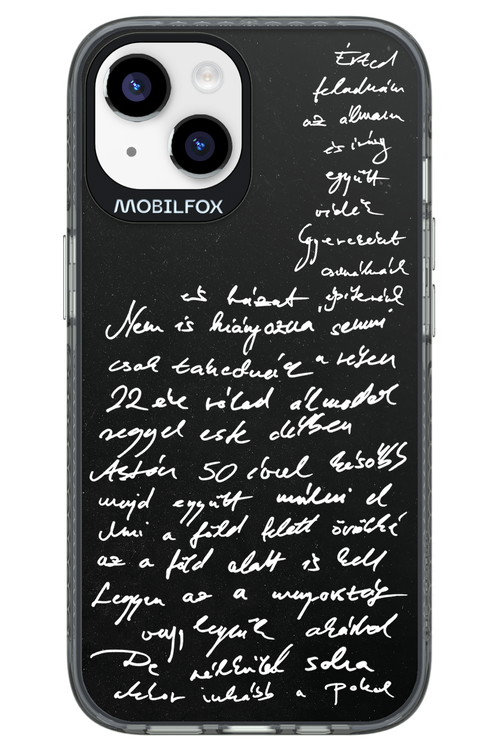 MOBILFOX
Érted
feladnám
az álmaim
és irány
együtt
vidék
Gyerekeket
csinálnánk
és házat építenénk
Nem is hiányozna semmi
csak takednék a részen
22 éve rólad álmodok
reggel este délben
Aztán 50 évvel később
majd együtt múlni el
Ami a föld felett örökké
az a föld alatt is kell
Legyen az a mennyország
vagy legyünk akárhol
De nélküled soha
akkor inkább a Pokol